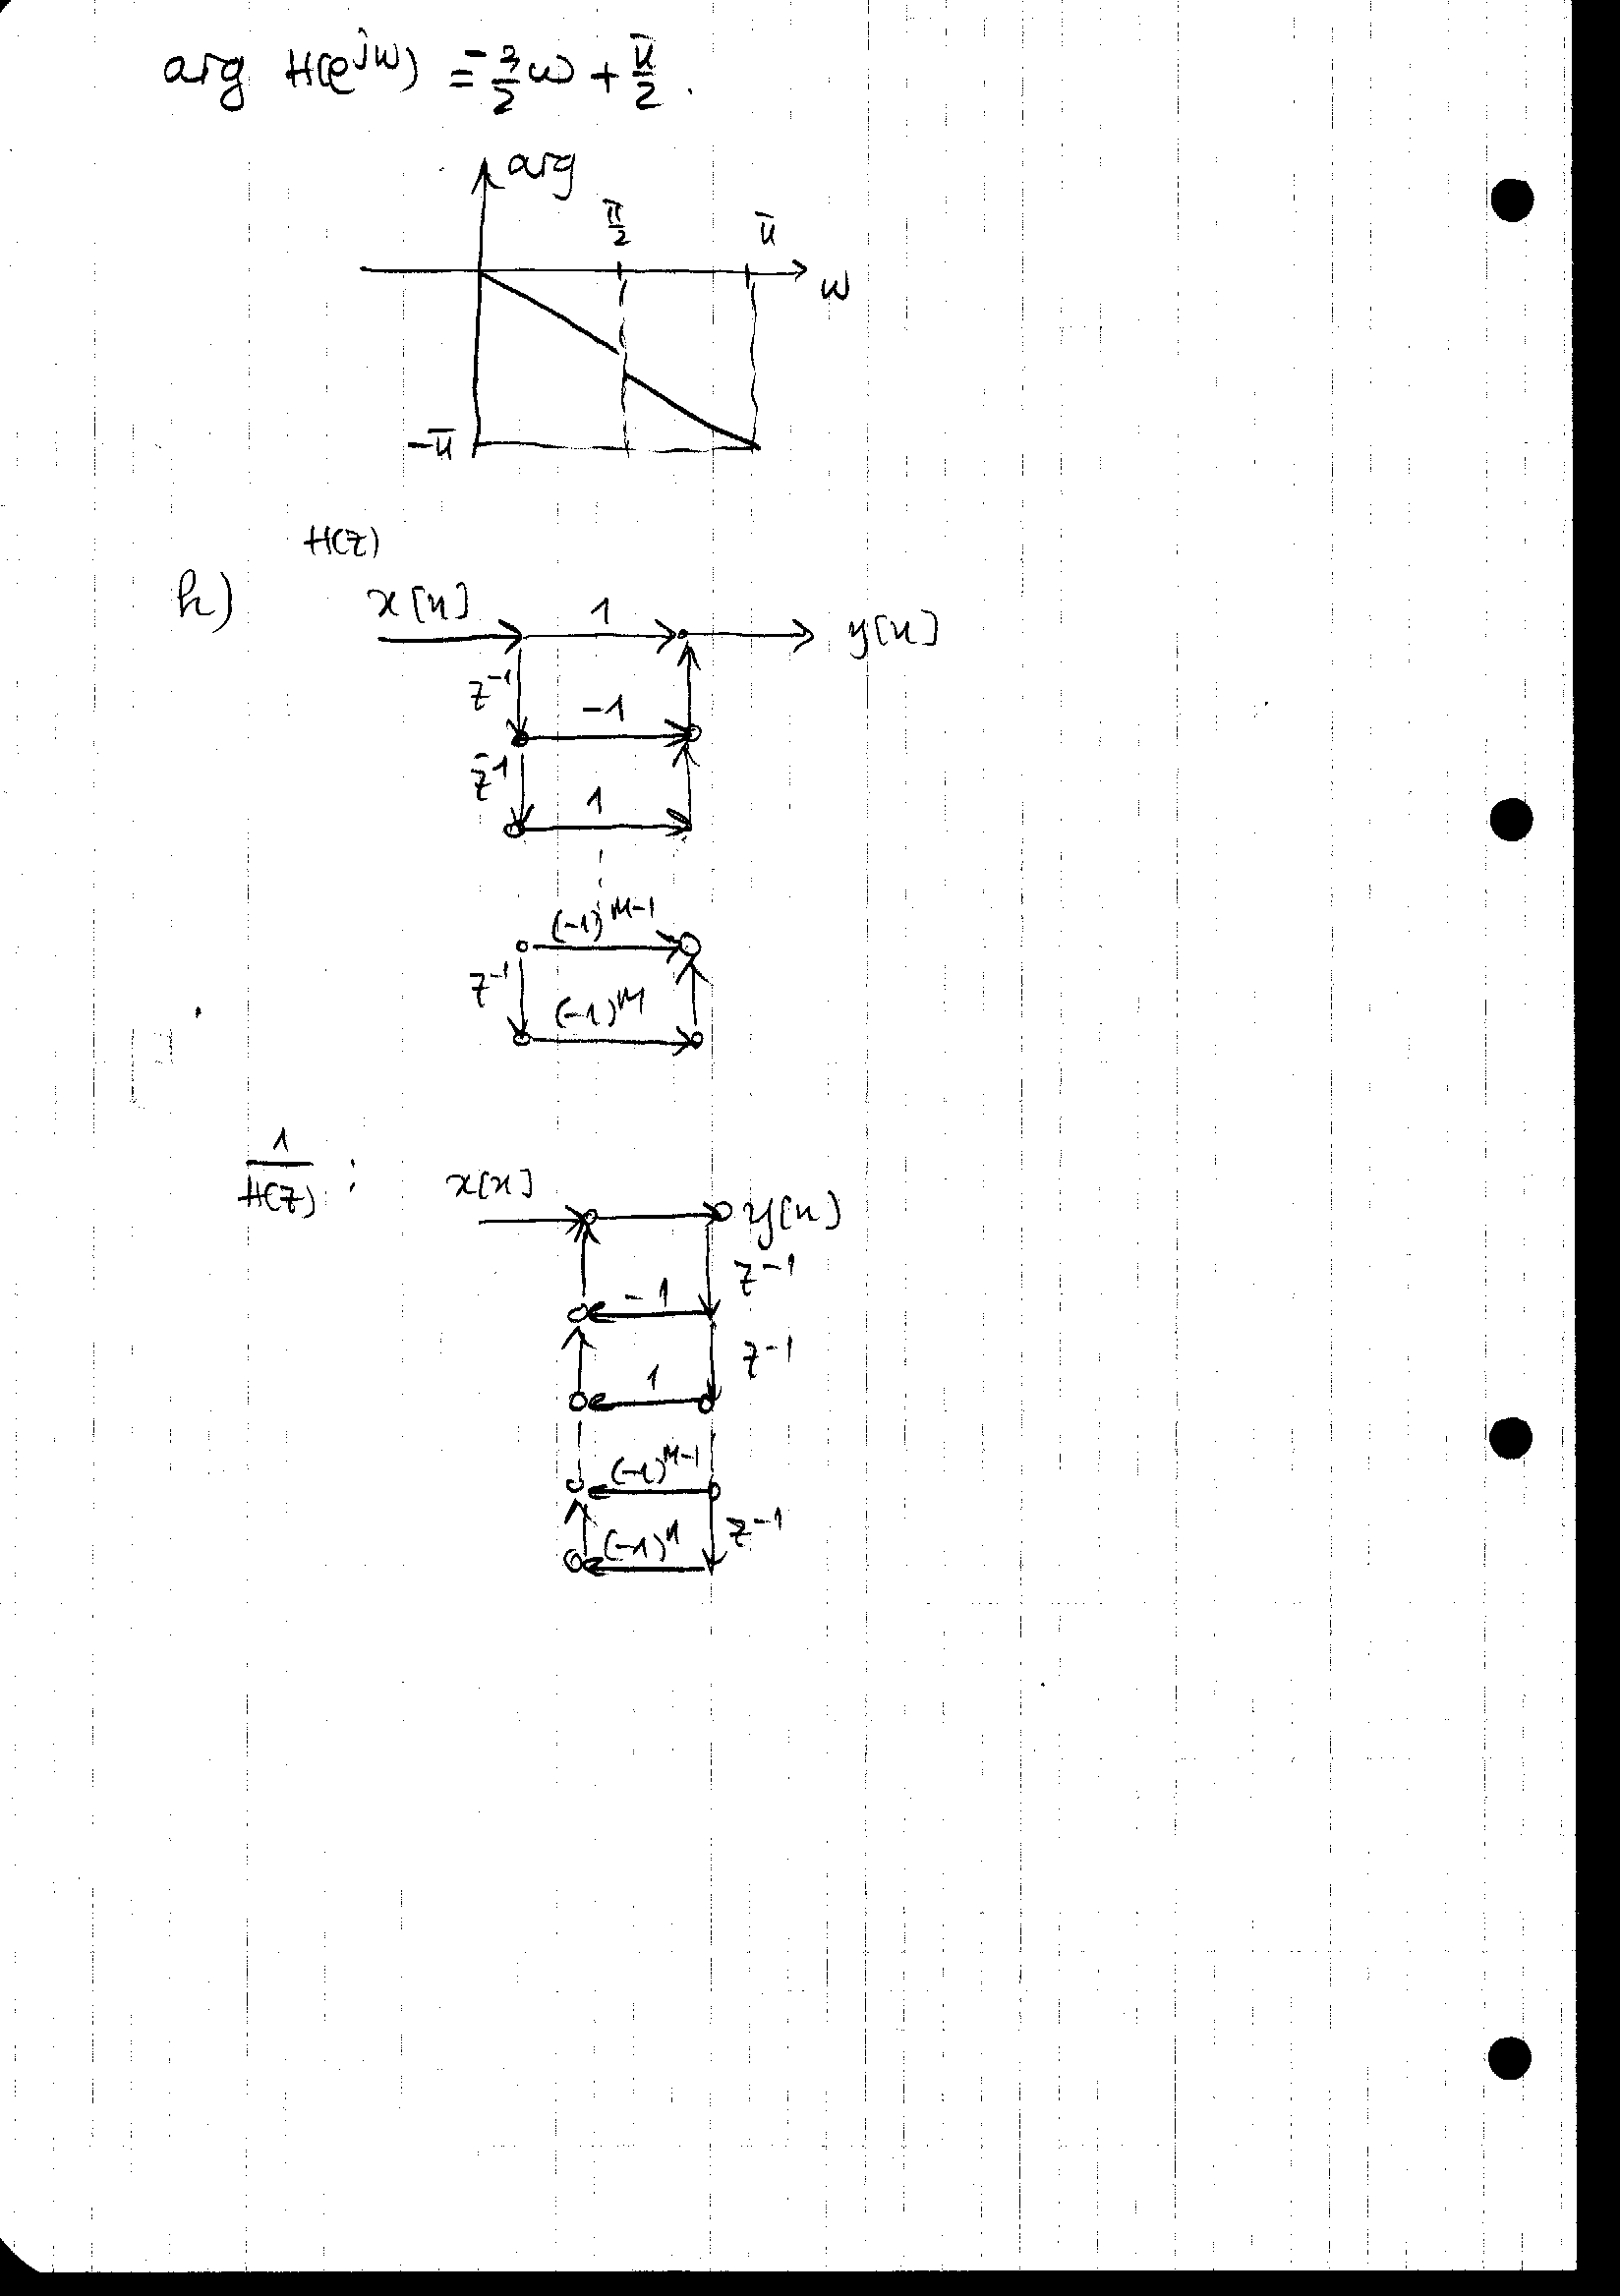 arg H(e^{jω}) = -3/2 ω + π/2 .
arg
π/2 π
ω
-π
H(z)
h) x[n] 1 y[n]
z^{-1} -1
z^{-1} 1
(-1)^{M-1}
z^{-1} (-1)^M
1/H(z) : x[n] y[n]
z^{-1}
-1
z^{-1}
1
(-1)^{M-1}
z^{-1}
(-1)^M